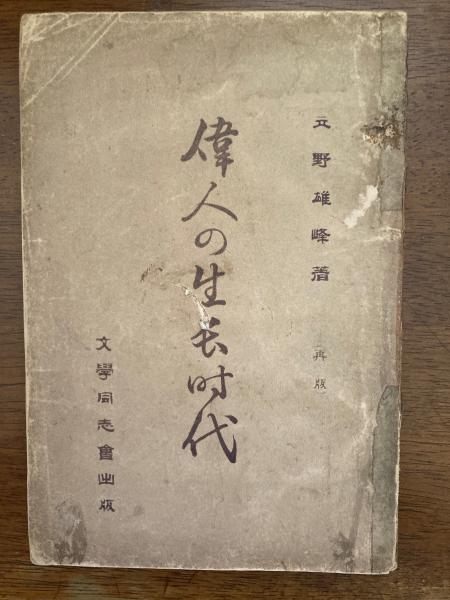 立野雄峰著
再版
偉人の生长时代
文學同志會出版